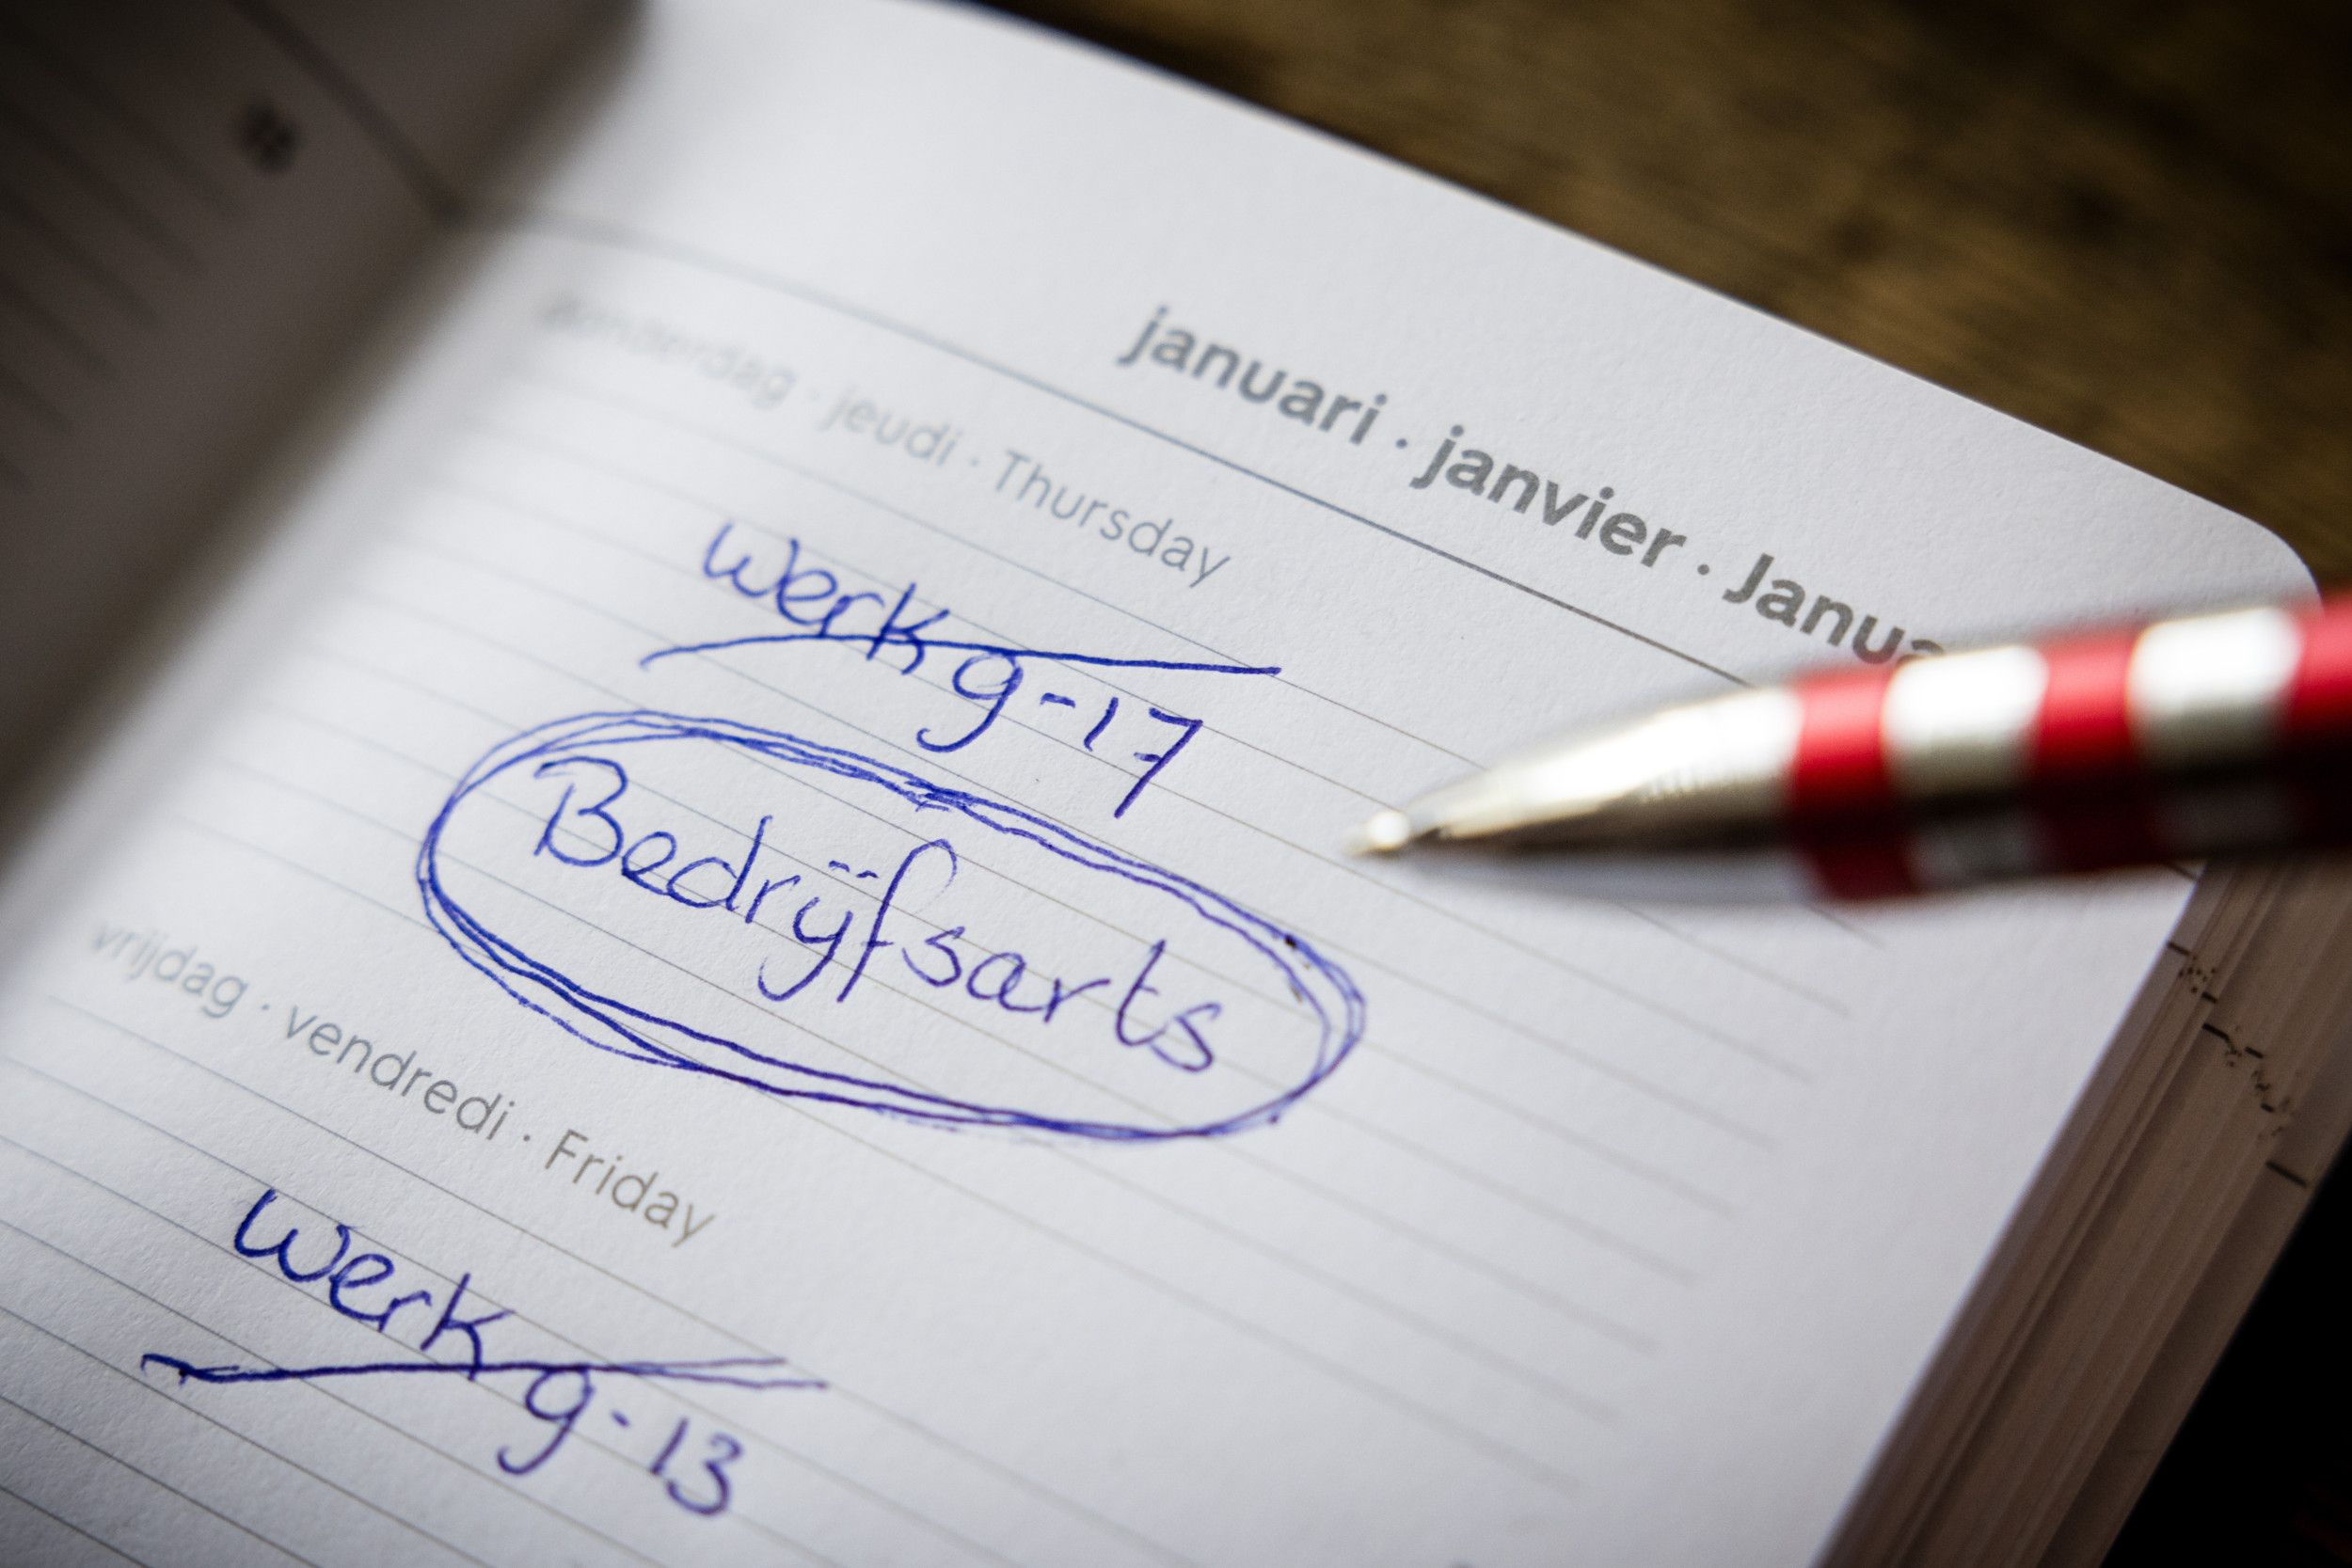 januari · janvier · Janua
donderdag · jeudi · Thursday
werk 9-17
Bedrijfsarts
vrijdag · vendredi · Friday
werk 9-13